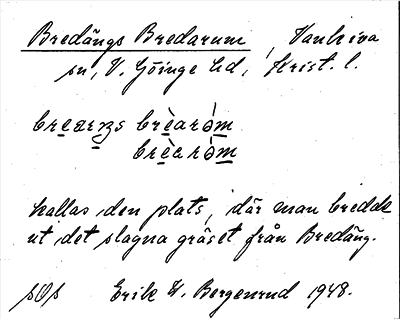 Bredängs Bredarum, Vankiva
sn, V. Göinge hd, Krist. l.
kallas den plats, där man bredde
ut det slagna gräset från Bredäng.
Erik W. Bergenrud 1948.